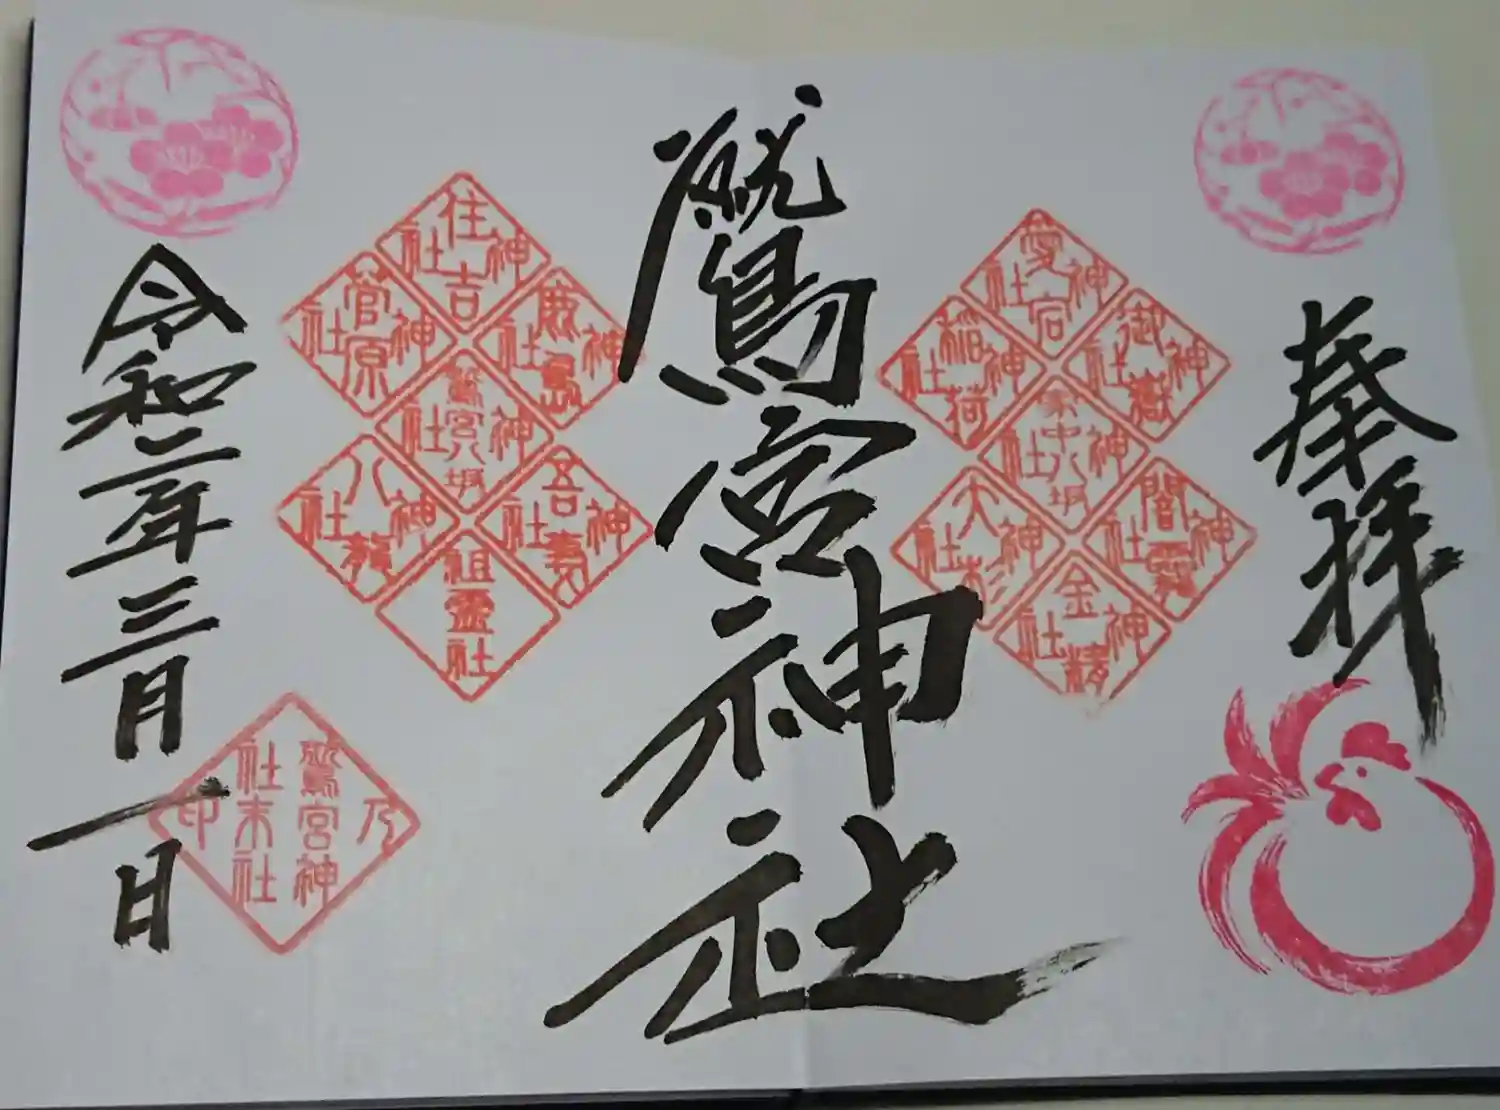 奉拝
愛宕神社
御嶽神社
稲荷神社
闇龗神社
大杉神社
金精神社
鷲宮神社
住吉神社
鹿島神社
菅原神社
鷲宮八坂神社
吾妻神社
八龍神社
祖霊社
令和二年三月一日
鷲宮神社末社乃印